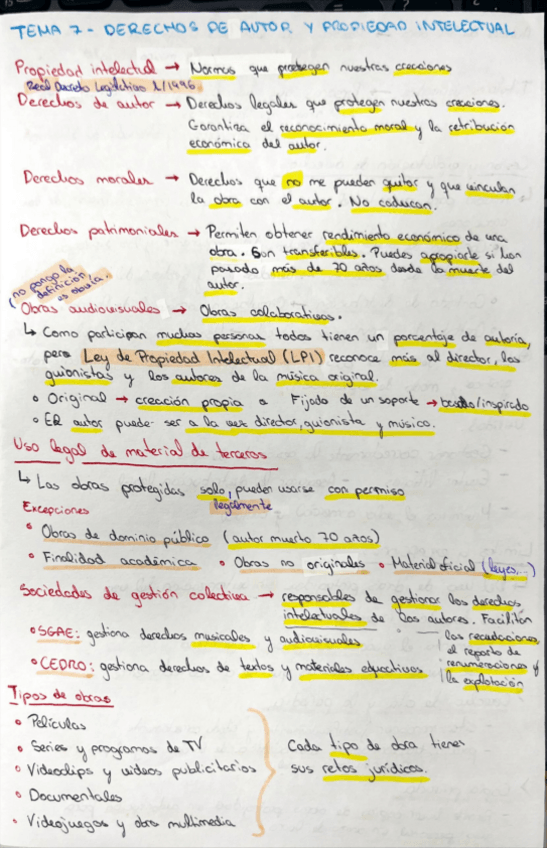 TEMA 7 - DERECHOS DE AUTOR Y PROPIEDAD INTELECTUAL
Propiedad intelectual → Normas que protegen nuestras creaciones
Real Decreto Legislativo 1/1996
Derechos de autor → Derechos legales que protegen nuestras creaciones.
Garantiza el reconocimiento moral y la retribución
económica del autor.
Derechos morales → Derechos que no me pueden quitar y que vinculan
la obra con el autor. No caducan.
Derechos patrimoniales → Permiten obtener rendimiento económico de una
obra. Son transferibles. Puedes apropiarte si han
pasado más de 70 años desde la muerte del
autor.
(no pongo la
definición
es obvia.
Obras audiovisuales → Obras colaborativas.
↳ Como participan muchas personas todos tienen un porcentaje de autoría,
pero Ley de Propiedad Intelectual (LPI) reconoce más al director, los
guionistas y los autores de la música original.
• Original → creación propia o Fijada de un soporte → basado/inspirado
• El autor puede ser a la vez director, guionista y músico.
Uso legal de material de terceros
↳ Las obras protegidas solo pueden usarse con permiso
legalmente
Excepciones
• Obras de dominio público (autor muerto 70 años)
• Finalidad académica • Obras no originales • Material oficial (leyes...)
Sociedades de gestión colectiva → responsables de gestionar los derechos
intelectuales de los autores. Facilitan
• SGAE: gestiona derechos musicales y audiovisuales
las recaudaciones,
el reparto de
• CEDRO: gestiona derechos de textos y materiales educativos
remuneraciones y
la explotación
Tipos de obras
• Películas
• Series y programas de TV
• Videoclips y videos publicitarios
• Documentales
• Videojuegos y obra multimedia
Cada tipo de obra tiene
sus retos jurídicos.